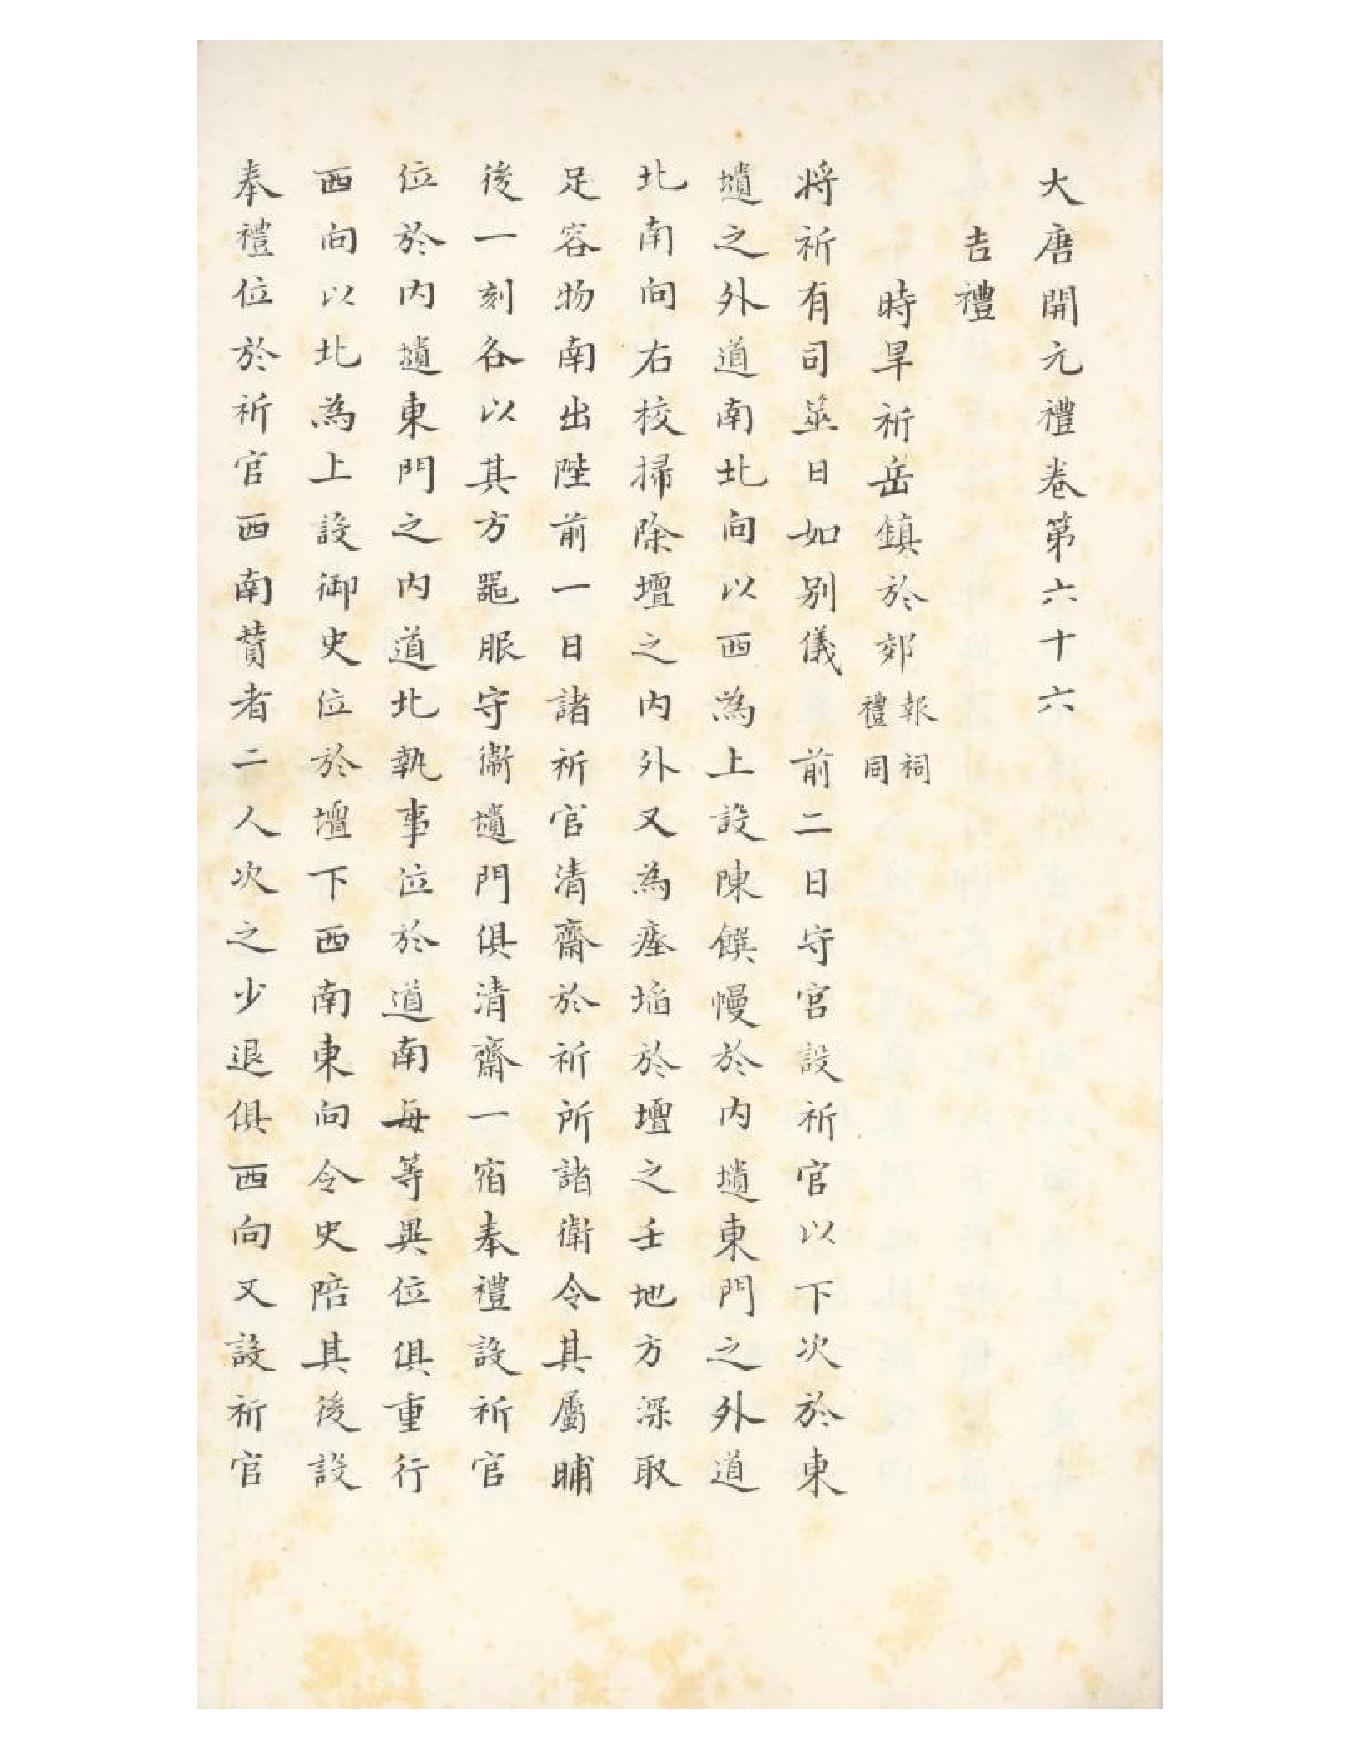 大唐開元禮卷第六十六
吉禮
時旱祈岳鎮於郊報祠禮同
將祈有司筮日如別儀　前二日守宮設祈官以下次於東
壝之外道南北向以西為上設陳饌幔於內壝東門之外道
北南向右校掃除壇之內外又為瘞埳於壇之壬地方深取
足容物南出陛前一日諸祈官清齋於祈所諸衛令其屬晡
後一刻各以其方器服守衛壝門俱清齋一宿奉禮設祈官
位於內壝東門之內道北執事位於道南每等異位俱重行
西向以北為上設御史位於壇下西南東向令史陪其後設
奉禮位於祈官西南贊者二人次之少退俱西向又設祈官